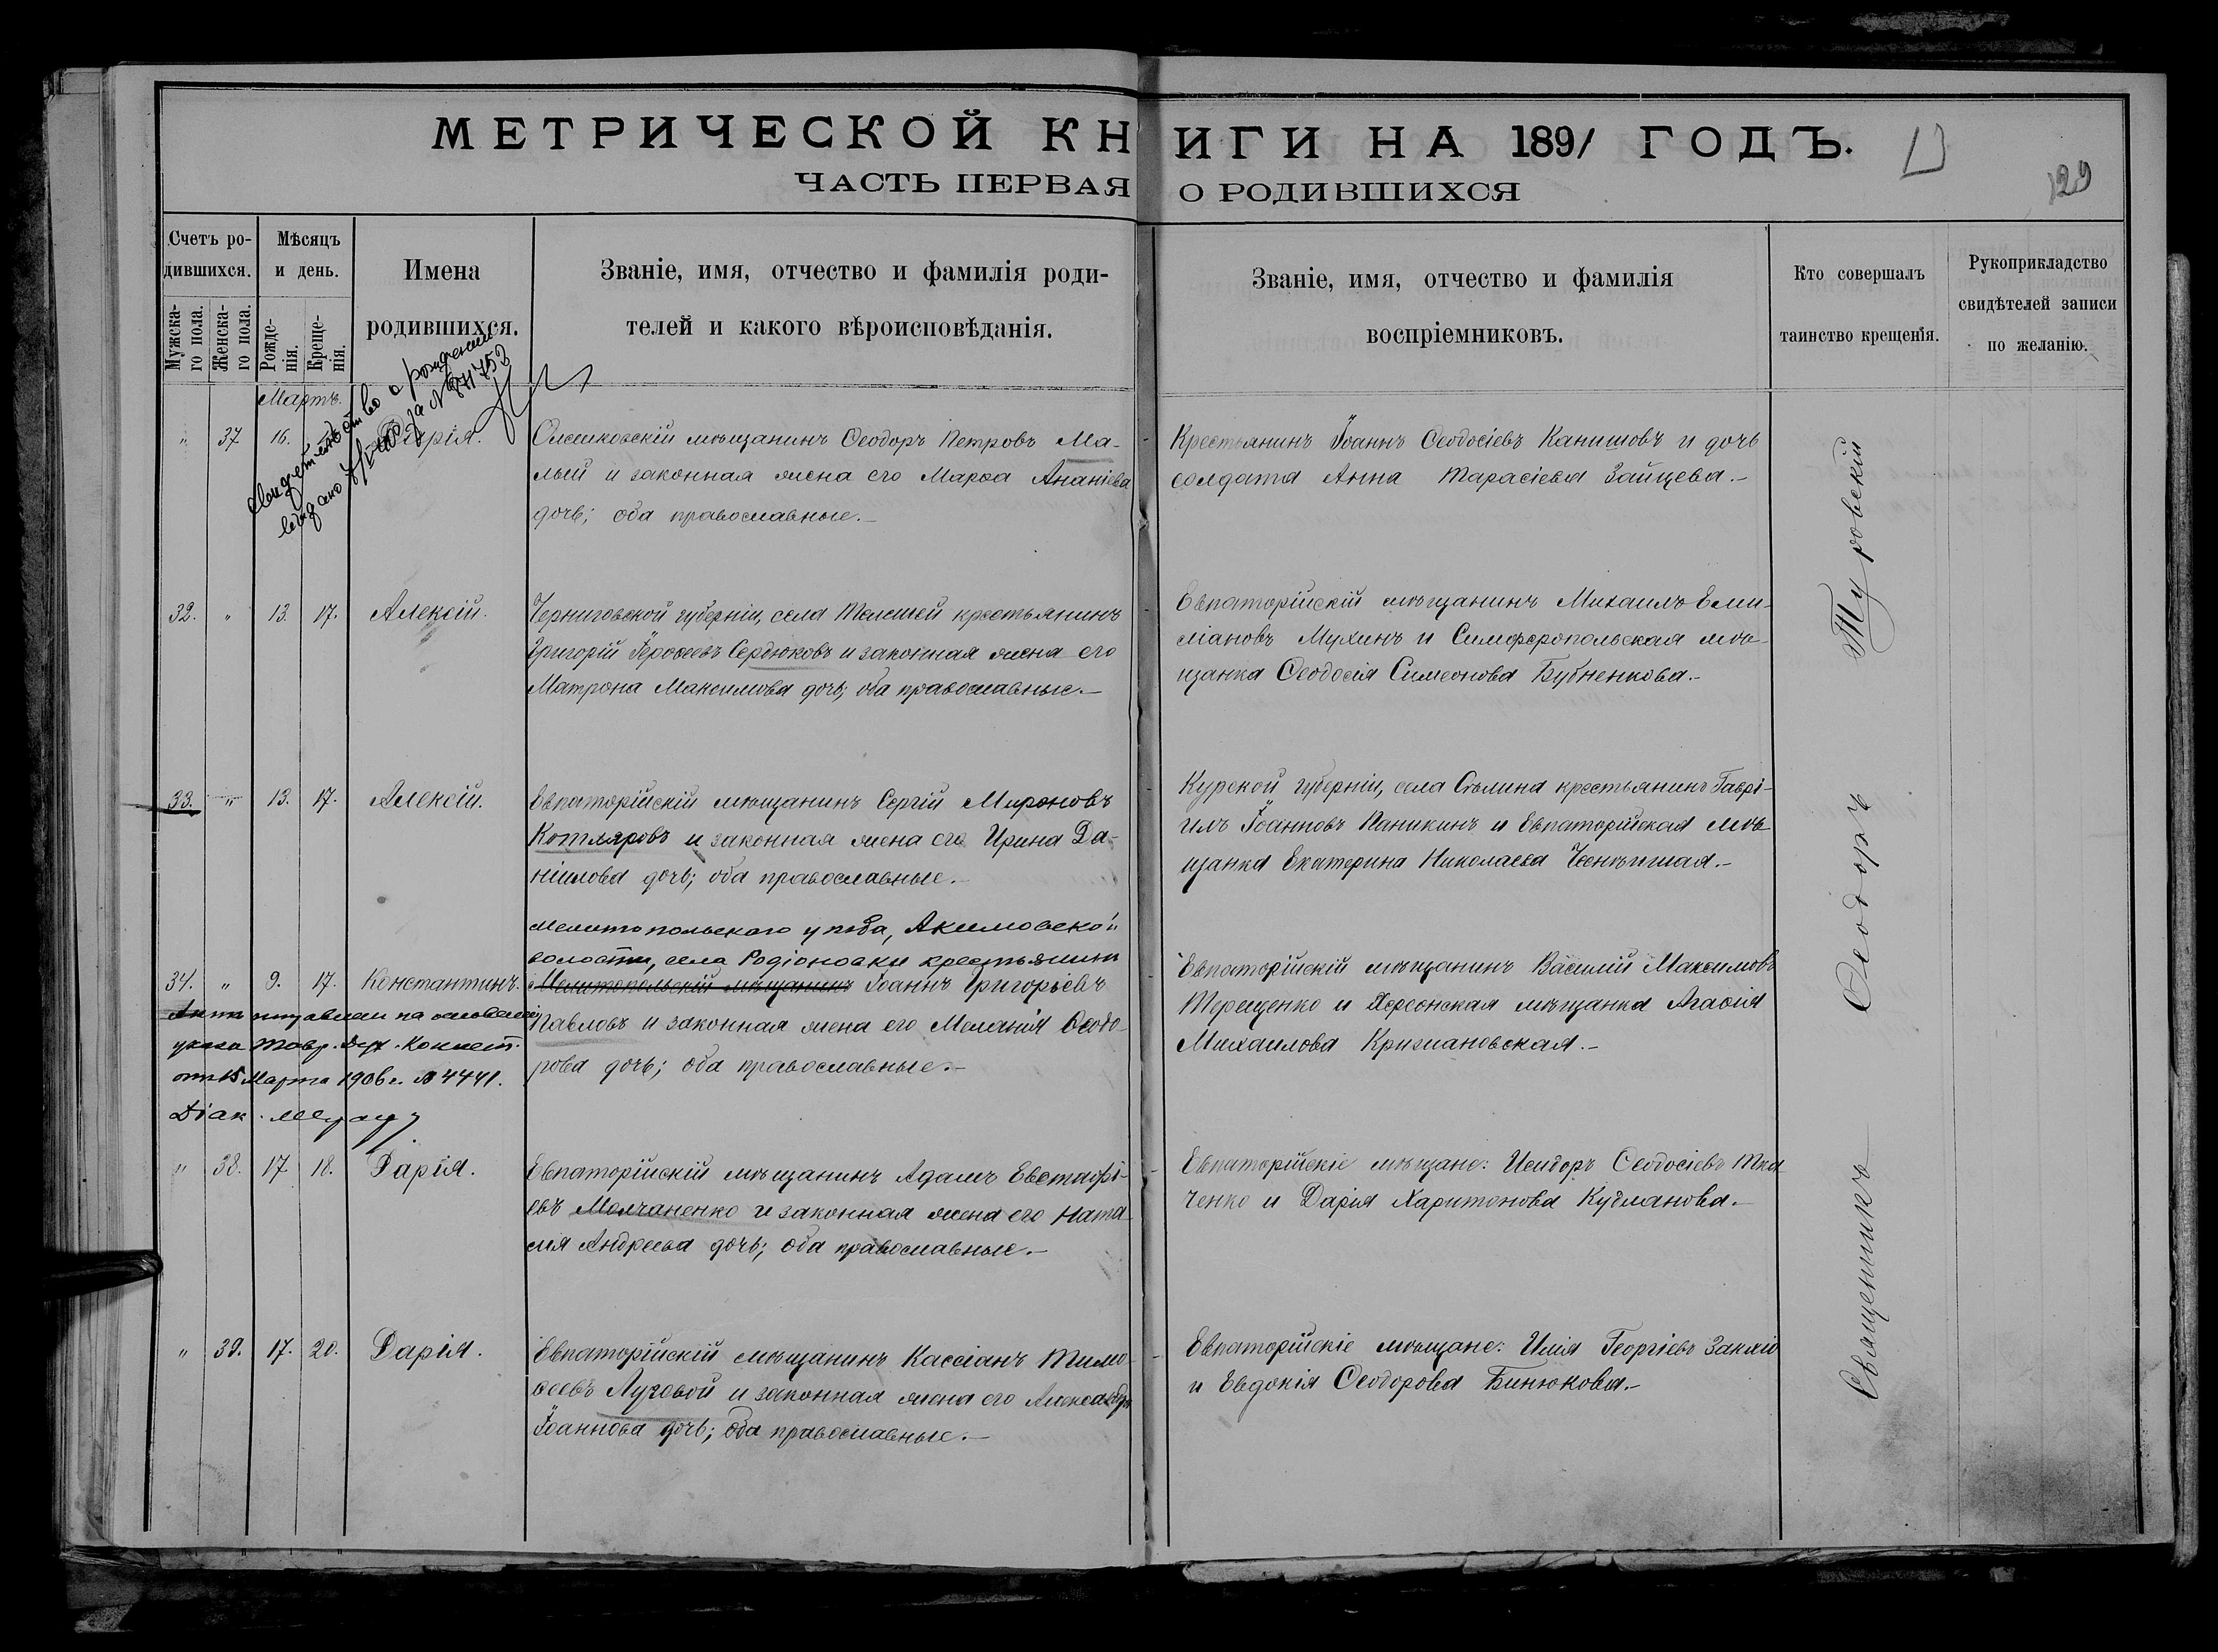 МЕТРИЧЕСКОЙ КНИГИ НА 1891 ГОДЪ.
129
ЧАСТЬ ПЕРВАЯ О РОДИВШИХСЯ
Счетъ родившихся.
Мужска-
го пола.
Женска-
го пола.
Мѣсяцъ
и день.
Рожде-
нія.
Креще-
нія.
Имена
родившихся.
Званіе, имя, отчество и фамилія роди-
телей и какого вѣроисповѣданія.
Званіе, имя, отчество и фамилія
воспріемниковъ.
Кто совершалъ
таинство крещенія.
Рукоприкладство
свидѣтелей записи
по желанію.
Мартъ.
Свидетельство о рождении
" 37 16. Дарія.
Олешковскій мѣщанинъ Ѳеодоръ Петровъ Ма-
лый и законная жена его Марѳа Ананіева
дочь; оба православные.—
Крестьянинъ Іоаннъ Ѳеодосіевъ Канишовъ и дочь
солдата Анна Тарасіева Зайцева.—
32. " 13. 17. Алексій.
Черниговской губерніи, села крестьянинъ
Григорій Іероѳеевъ Сердюковъ и законная жена его
Матрона Максимова дочь; оба православные.—
Евпаторійскій мѣщанинъ Михаилъ Еми-
ліановъ Мухинъ и Симферопольская мѣ-
щанка Ѳеодосія Симеонова Бубненкова.—
33. " 13. 17. Алексій.
Евпаторійскій мѣщанинъ Сергій Мироновъ
Котляровъ и законная жена его Ирина Да-
ніилова дочь; оба православные.—
Курской губерніи, села крестьянинъ Гаврі-
илъ Іоанновъ Паникинъ и Евпаторійская мѣ-
щанка Екатерина Николаева
Мелитопольскаго уѣзда, Акимовской
волости, села Родіоновки крестьянинъ
34. " 9. 17. Константинъ. Мелитопольскій мѣщанинъ Іоаннъ Григорьевъ
Павловъ и законная жена его Меланія Ѳеодо-
рова дочь; оба православные.—
Евпаторійскій мѣщанинъ Василій Максимовъ
Терещенко и Херсонская мѣщанка Агаѳія
Михаилова Крижановская.—
Актъ исправленъ на основаніи
указа Тавр. Дух. Консист.
отъ 15 Марта 1906 г. № 4441.
Діак.
" 38. 17. 18. Дарія.
Евпаторійскій мѣщанинъ Адамъ Евстафі-
евъ Молчаненко и законная жена его Ната-
лія Андреева дочь; оба православные.—
Евпаторійскіе мѣщане: Исидоръ Ѳеодосіевъ Тка-
ченко и Дарія Харитонова Кубланова.—
" 39. 17. 20. Дарія.
Евпаторійскій мѣщанинъ Кассіанъ Тимо-
ѳеевъ Луговой и законная жена его Александра
Іоаннова дочь; оба православные.—
Евпаторійскіе мѣщане: Илія Георгіевъ
и Евдокія Ѳеодорова Бинюкова.—
Священникъ Ѳеодоръ Туровскій